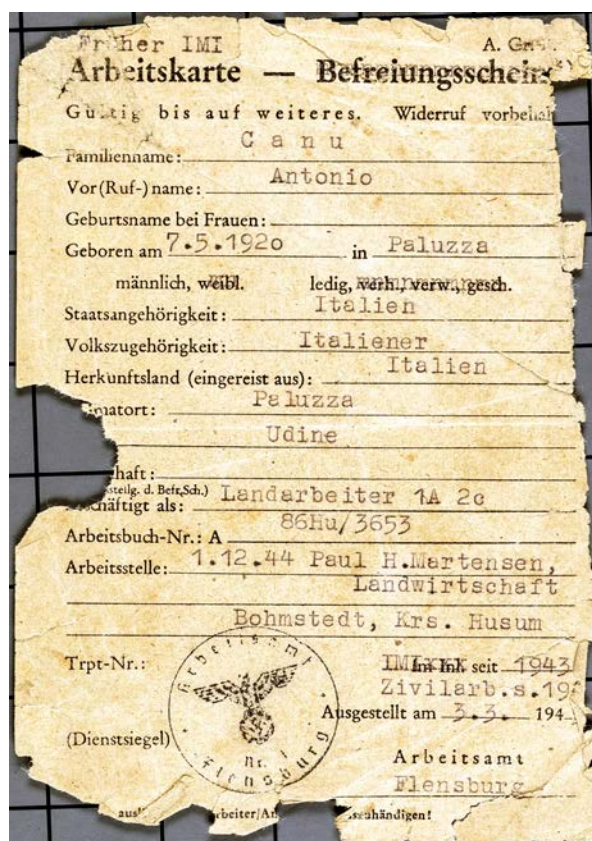 Früher IMI
A.
Arbeitskarte — Befreiungsschein
Gültig bis auf weiteres. Widerruf
Familienname: Canu
Vor(Ruf-)name: Antonio
Geburtsname bei Frauen:
Geboren am 7.5.1920 in Paluzza
männlich, weibl. ledig, verh., verw., gesch.
Staatsangehörigkeit: Italien
Volkszugehörigkeit: Italiener
Herkunftsland (eingereist aus): Italien
matort: Paluzza
Udine
haft:
steilg. d. Befr.Sch.)
häftigt als: Landarbeiter 1A 2c
Arbeitsbuch-Nr.: A 86Hu/3653
Arbeitsstelle: 1.12.44 Paul H.Martensen,
Landwirtschaft
Bohmstedt, Krs. Husum
Trpt-Nr.: IMI seit 1943
Zivilarb.s.19
Ausgestellt am 3.3. 194
(Dienstsiegel)
Arbeitsamt
Flensburg
Nr. 1
Arbeitsamt
Flensburg
aus rbeiter/An zuhändigen!